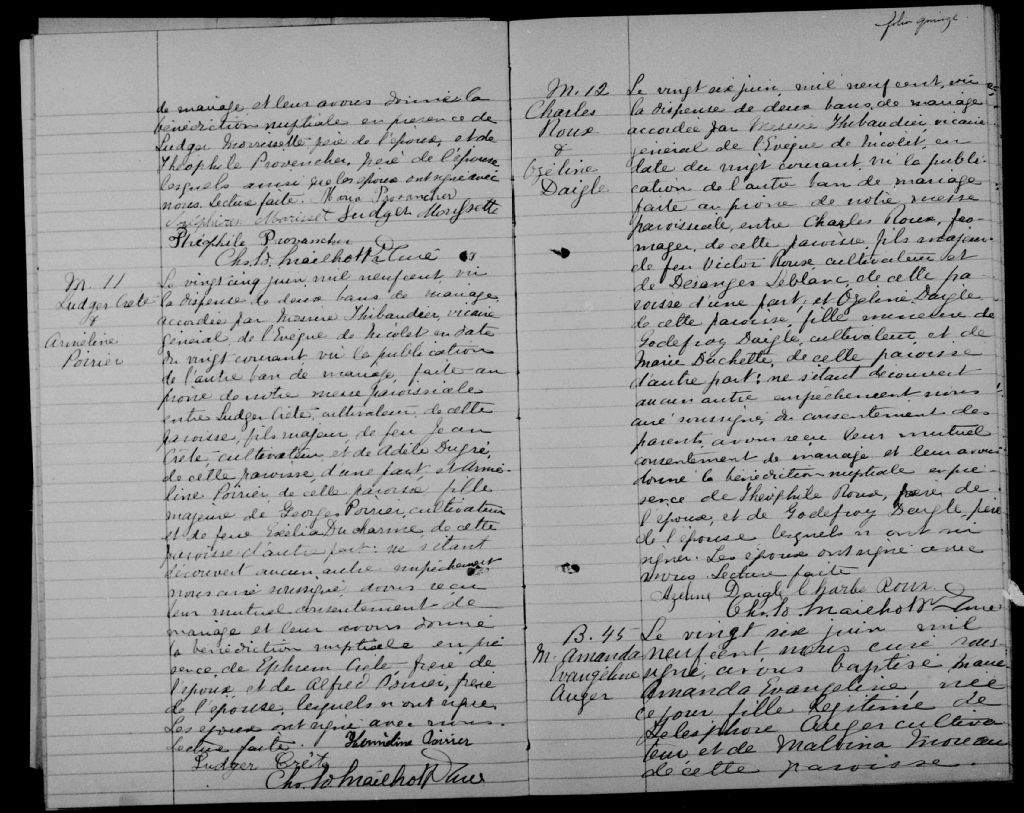 folio quinze
de mariage et leur avons donné la
bénédiction nuptiale en présence de
Ludger Morrissette père de l'époux, et de
Théophile Provencher, père de l'épouse
lesquels ainsi que les époux ont signé avec
nous. Lecture faite. Maria Provancher
Morisset Ludger Morissette
Théophile Provancher
Chs. D. Mailhot Ptre Curé
M. 11
Ludger Crête
&
Arméline
Poirier
Le vingt cinq juin, mil neuf cent, vu
la dispense de deux bans de mariage
accordée par Messire Thibaudier, vicaire
général, de l'Evêque de Nicolet en date
du vingt courant vu la publication
de l'autre ban de mariage faite au
prône de notre messe paroissiale
entre Ludger Crête, cultivateur, de cette
paroisse, fils majeur, de feu Jean
Crête, cultivateur, et de Adèle Dugré,
de cette paroisse, d'une part, et Armé-
line Poirier, de cette paroisse, fille
majeure de Georges Poirier, cultivateur
et de feue Exélia Ducharme, de cette
paroisse d'autre part: ne s'étant
découvert aucun autre empêchement
nous curé soussigné, avons reçu
leur mutuel consentement de
mariage et leur avons donné
la bénédiction nuptiale en pré
sence, de Ephrem Crête, frère de
l'époux, et de Alfred Poirier, frère
de l'épouse, lesquels n'ont signé.
Les époux ont signé avec nous.
Lecture faite. Herméline Poirier
Ludger Crête
Chs. D. Mailhot Ptre Curé
M. 12
Charles
Roux
&
Ozéline
Daigle
Le vingt six juin, mil neuf cent, vu
la dispense de deux bans de mariage
accordée par Messire Thibaudier, vicaire
général de l'Evêque de Nicolet, en
date du vingt courant vu la publi-
cation de l'autre ban de mariage
faite au prône de notre messe
paroissiale, entre Charles Roux, fro-
mager, de cette paroisse, fils majeur
de feu Victor Roux, cultivateur et
de Desanges Leblanc, de cette pa-
roisse d'une part; et Ozéline Daigle
de cette paroisse, fille mineure de
Godefroy Daigle, cultivateur, et de
Marie Duchette, de cette paroisse
d'autre part: ne s'étant découvert
aucun autre empêchement nous
curé soussigné, du consentement des
parents, avons reçu leur mutuel
consentement de mariage et leur avons
donné la bénédiction nuptiale en pré-
sence de Théophile Roux, frère de
l'époux, et de Godefroy Daigle, père
de l'épouse lesquels n'ont su
signer. Les époux ont signé avec
nous. Lecture faite
Azeline Daigle Charles Roux.
Chs. D. Mailhot Ptre Curé
B. 45
M. Amanda
Evangéline
Auger
Le vingt six juin mil
neuf cent nous curé sous
signé, avons baptisé Marie
Amanda Evangéline, née
ce jour fille légitime de
Télesphore Auger cultiva
teur et de Malvina Moreau
de cette paroisse.